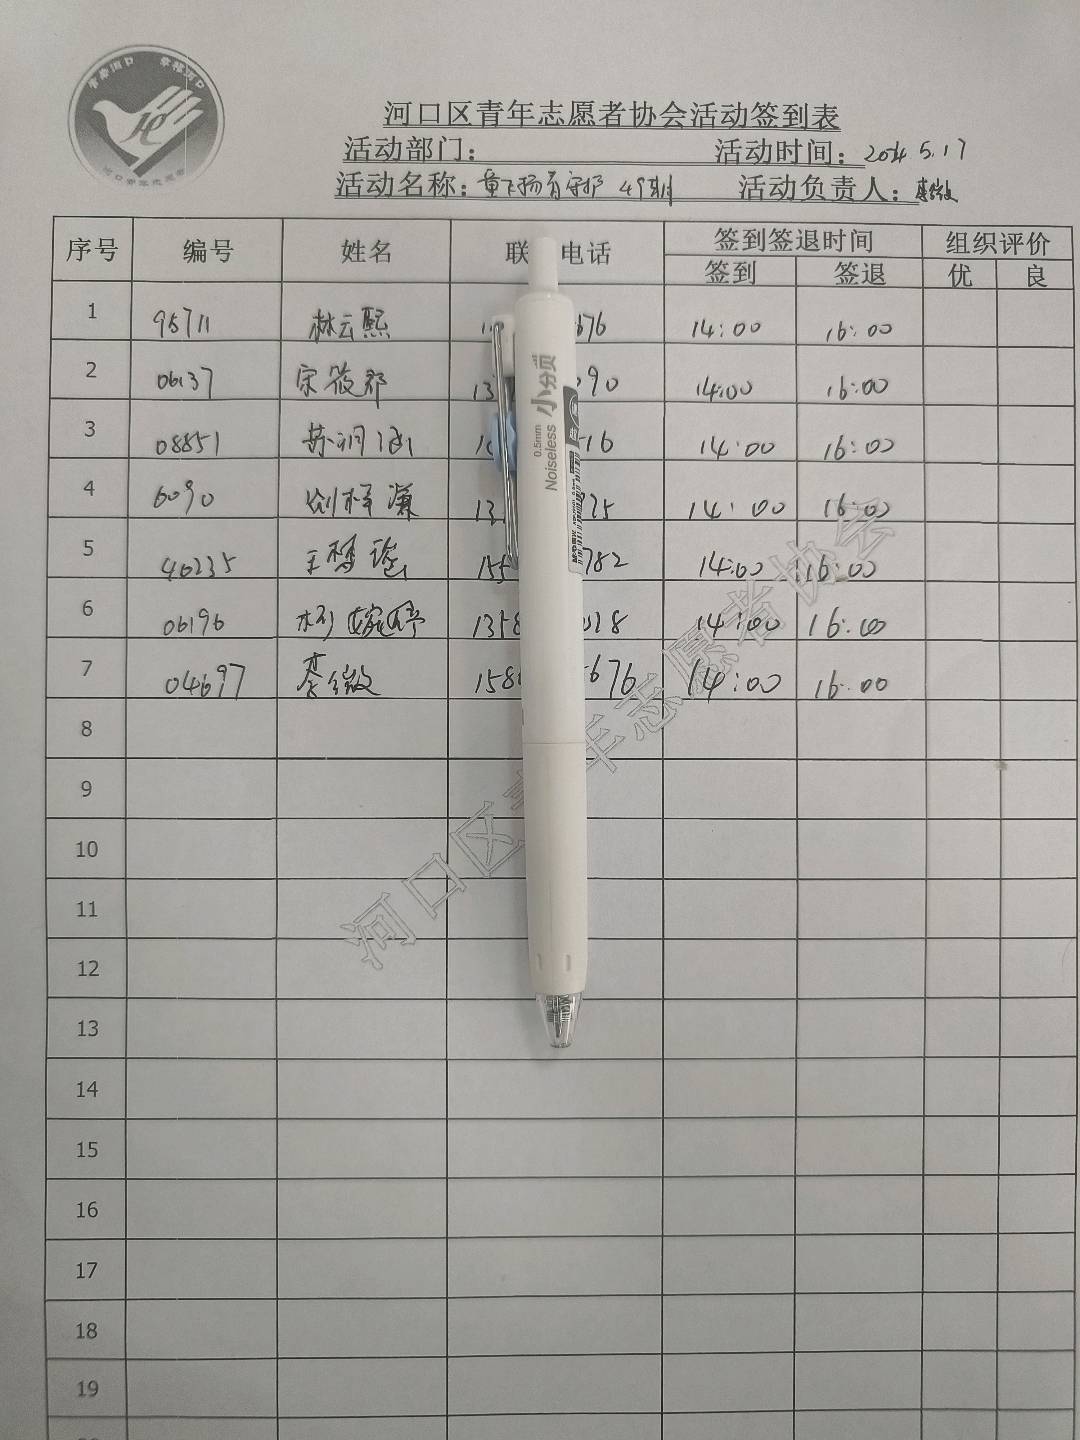 河口区青年志愿者协会活动签到表
活动部门： 活动时间：2024 5.17
活动名称：童飞扬 守护 49期 活动负责人：李微
序号 编号 姓名 联 电话 签到签退时间 组织评价
签到 签退 优 良
1 95711 林云熙 676 14:00 16:00
2 06137 宋筱郡 13 090 14:00 16:00
3 08851 苏润涵 16 14:00 16:00
4 6090 刘梓濂 13 14:00 16:00
5 40235 王梦瑶 155 782 14:00 16:00
6 06196 婉婷 1358 028 14:00 16:00
7 04697 李微 158 676 14:00 16:00
8
9
10
11
12
13
14
15
16
17
18
19
小分贝
0.5mm
Noiseless
河口区青年志愿者协会